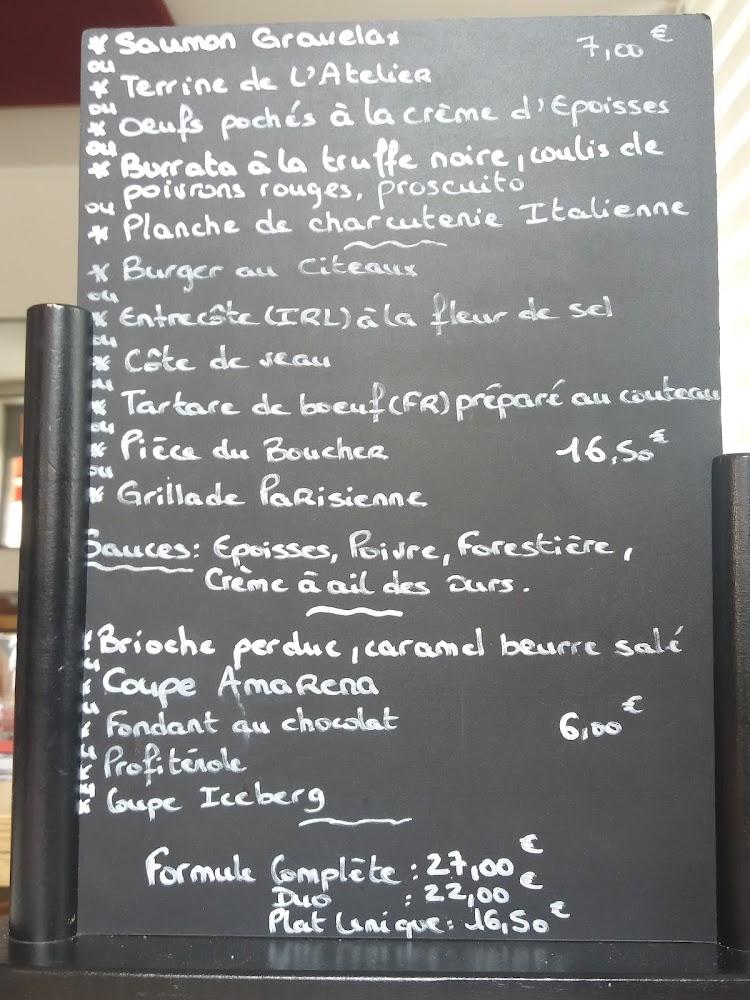 * Saumon Gravelax 7,00 €
ou
* Terrine de L'Atelier
ou
* Oeufs pochés à la crème d'Epoisses
ou
* Burrata à la truffe noire, coulis de
poivrons rouges, proscuito
ou
* Planche de charcuterie Italienne
* Burger au Citeaux
ou
* Entrecôte (IRL) à la fleur de sel
ou
* Côte de veau
ou
* Tartare de boeuf (FR) préparé au couteau
ou
* Pièce du Boucher 16,50 €
ou
* Grillade Parisienne
Sauces: Epoisses, Poivre, Forestière,
Crème à ail des ours.
* Brioche perdue, caramel beurre salé
ou
* Coupe Amarena
ou
* Fondant au chocolat 6,00 €
ou
* Profitérole
ou
* Coupe Iceberg
Formule Complète : 27,00 €
Duo : 22,00 €
Plat Unique : 16,50 €